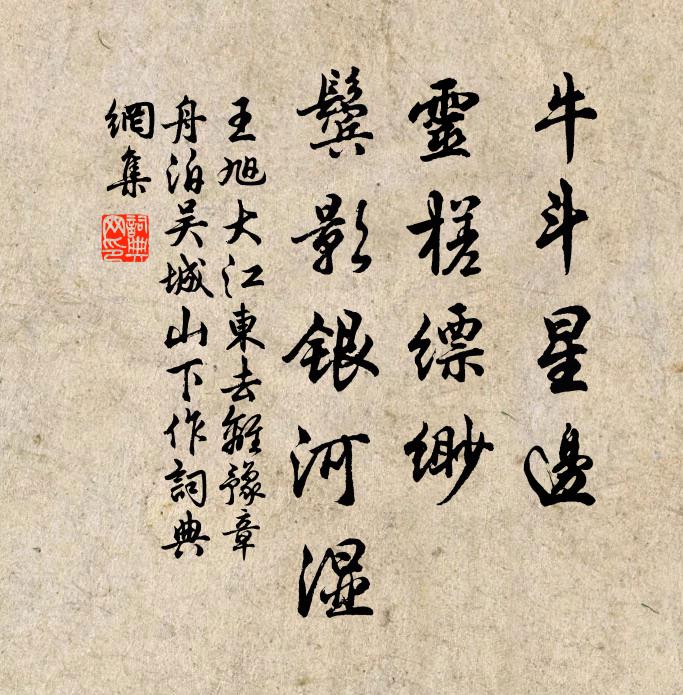 牛斗星邊
靈槎縹緲
鬢影銀河濕
王旭大江東去離豫章
舟泊吴城山下作詞典
網集
詞典
网印